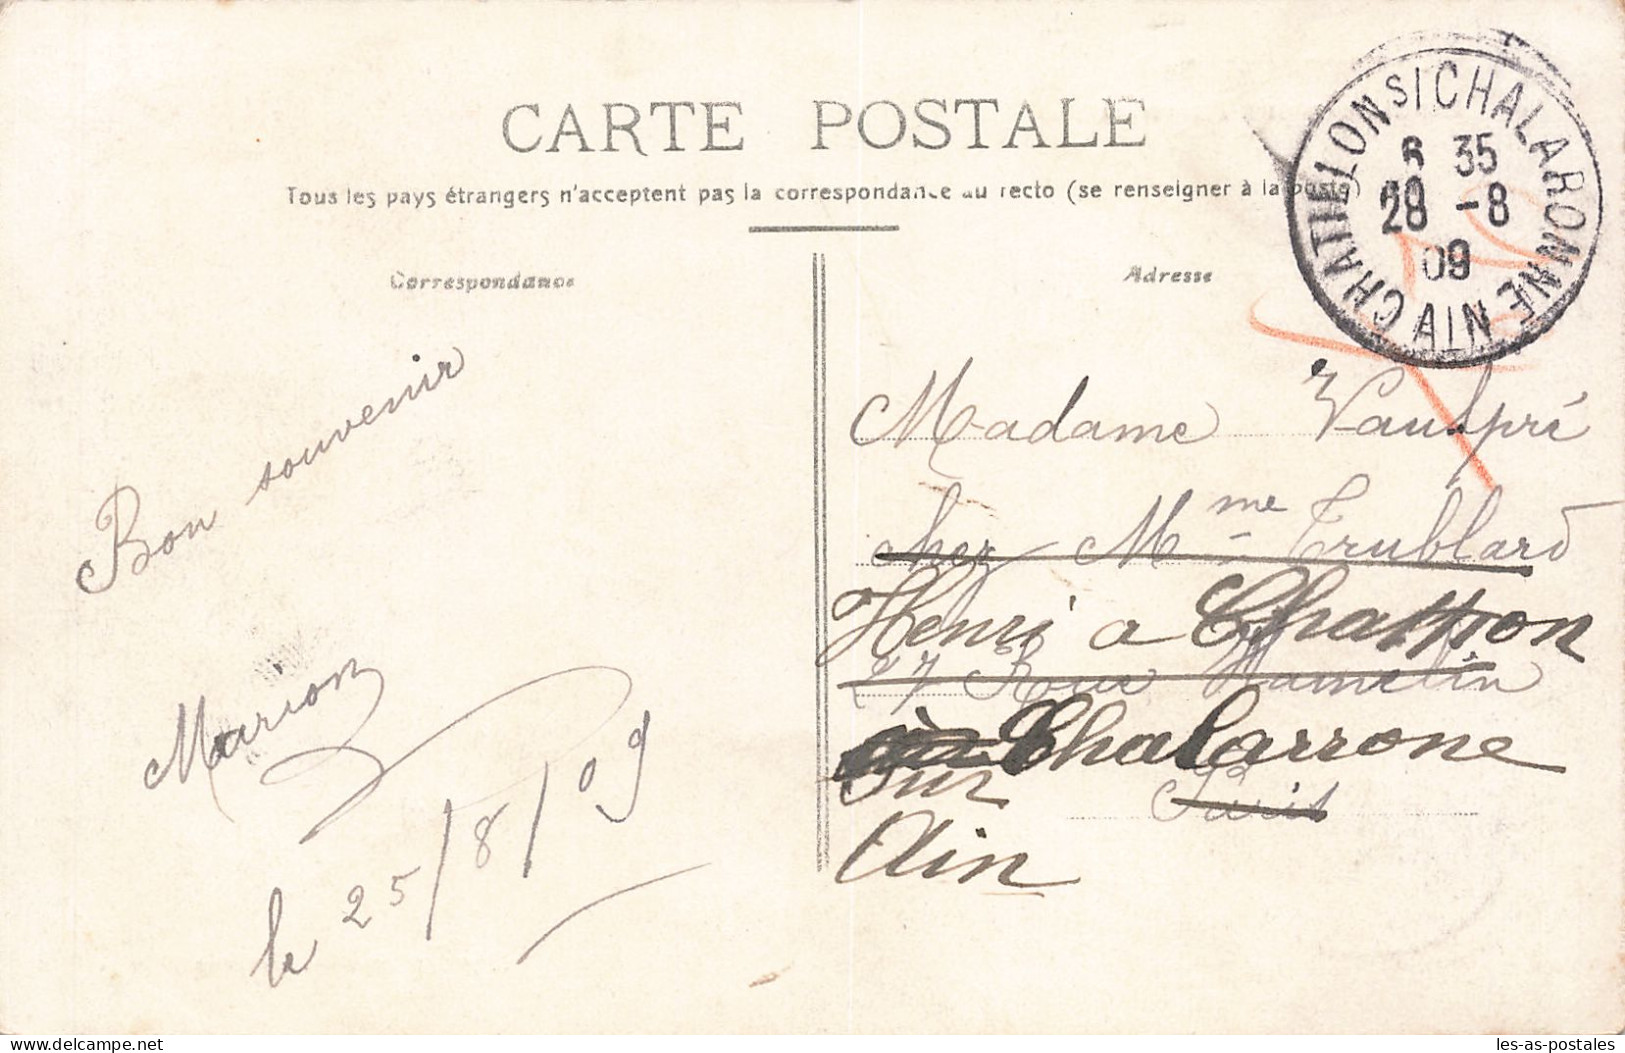 CARTE POSTALE
Tous les pays étrangers n'acceptent pas la correspondance au recto (se renseigner à la poste)
Correspondance
Adresse
CHATILLON S/ CHALARONNE
6 35
28 -8
09
AIN
Bon souvenir
Marion
le 25/8/09
Madame
chez Mme Trublard
Henri a
27 Rue Hamelin
Chalarrone
sur
Paris
Ain
les-as-postales